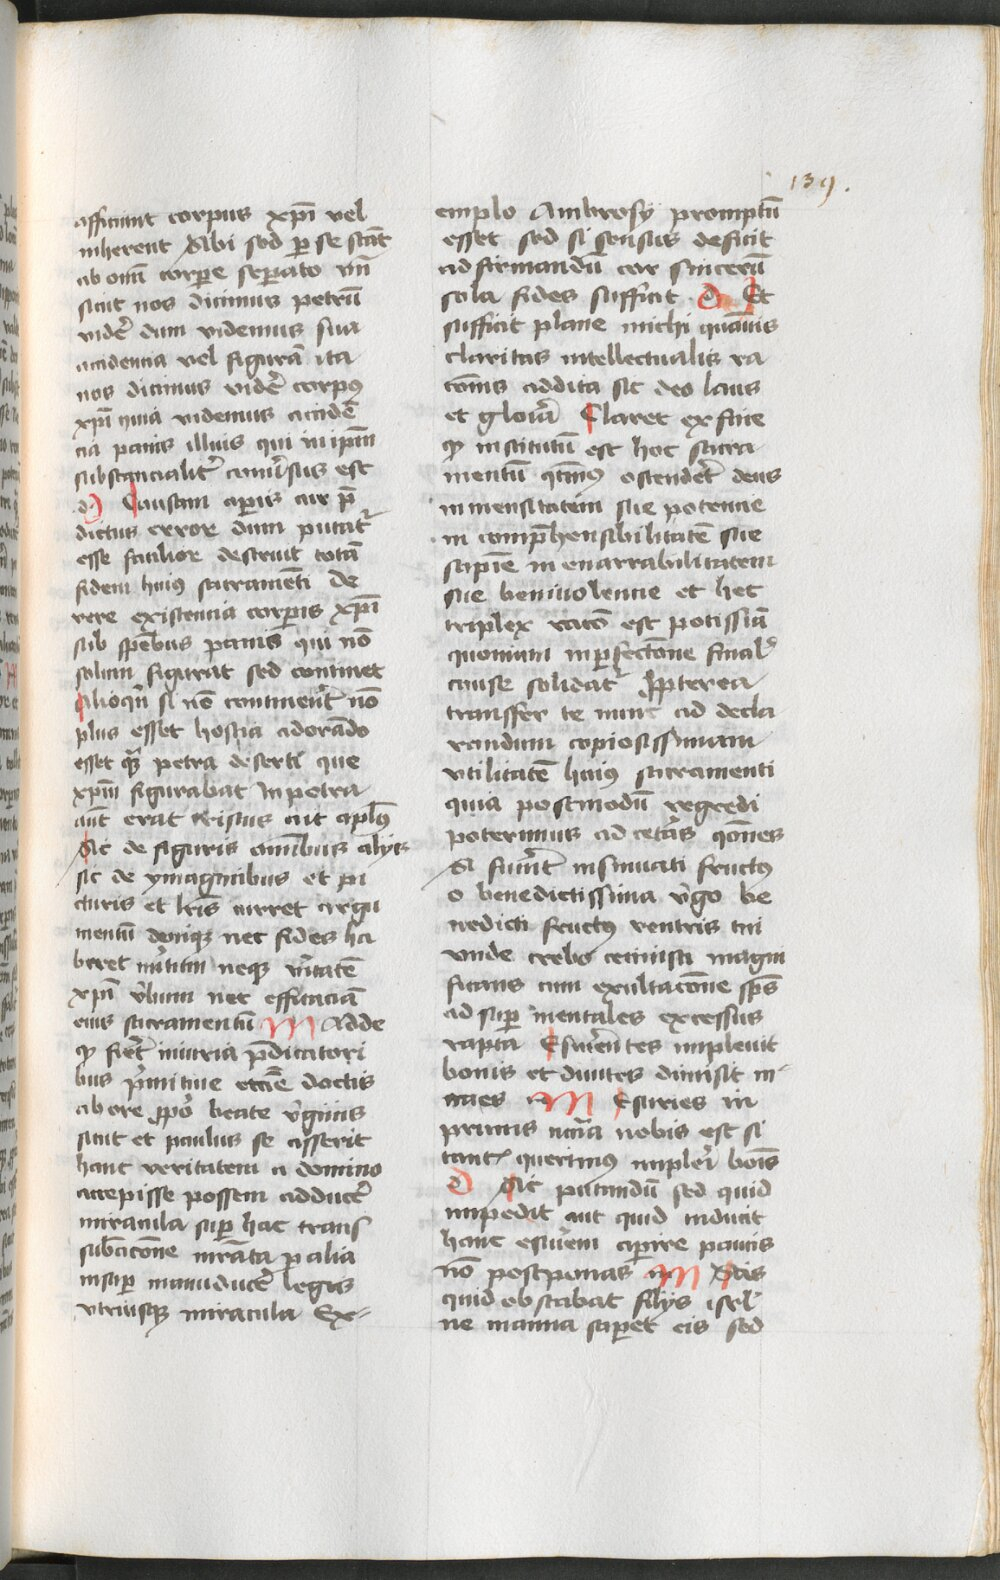 139.
afficiunt corpus xp̄i vel
inherent sibi sed per se stāt
ab omī corpore seperato vn̄
sicut nos dicimus petrū
videre dum videmus sua
accidencia vel figurā ita
nos dicimus videre corpus
xp̄i quia videmus acciden̄
cia panis illius qui in ipm̄
substancialiter conuersus est
d Causam aperis cur p̄
dictus error dum putatur
esse facilior destruit totā
fidem huius sacramenti de
vere existencia corporis xp̄i
sub spēbus panis qui nō
solum figurat sed continet
alioqn̄ si nō contineret nō
plus esset hostia adorādo
esset quam petra deserti que
xp̄m figurabat In petra
aūt erat cristus ait aplus
Sic de figuris omībus alijs
sic de ymaginibus et pi
cturis et lrīs curret argu
mentū deniqz nec fides ha
beret meritum neqz veritatē
xp̄i verbum nec efficaciā
eius sacramentū M Adde
qz fieret iniuria p̄dicatori
bus primitiue eccīe doctis
ab ore proprio beate virginis
sicut et paulus se asserit
hanc veritatem a domino
accepisse possem adducere
miracula super hac trans
subāciōne narrata per alia
insuper manuducere legis
vtriusqz miracula Ex=
emplo Ambrosij promptū
esset sed si sensus deficit
ad firmandū cor sincerū
sola fides sufficit D Et
sufficit plane michi quāuis
claritas intellectualis ra
cōnis addita sit deo laus
et gloria Claret ex fine
qz institutū est hoc sacra
mentū quatenus ostenderet deus
inmensitatem sue potencie
in comp̄hensibilitatē sue
sapīe inenarrabilitatem
sue beniuolencie et hec
triplex racō est potissīa
quoniam in perfectione final
cause solidatur Propterea
transfer te nunc ad decla
randum copiosissimam
vtilitatē huius sacramenti
quia postmodū regredi
poterimus ad ceteras qōnes
Si fuerint insinuati fructus
o benedictissima virgo be
nedicti fructus ventris tui
vnde crebo cecinisti magni
ficans cum exultacōne spūs
ad super mentales excessus
rapta Esurientes impleuit
bonis et diuites dimisit in
anes M Esuries in
primis necāria nobis est si
tantum querimus impleri bonis
D Sic putandū sed quid
impedit aut quid inducit
hanc esuriem aperire paucis
nō postponas M Scis
quid obstabat filijs isrl
ne manna saperet eis sed